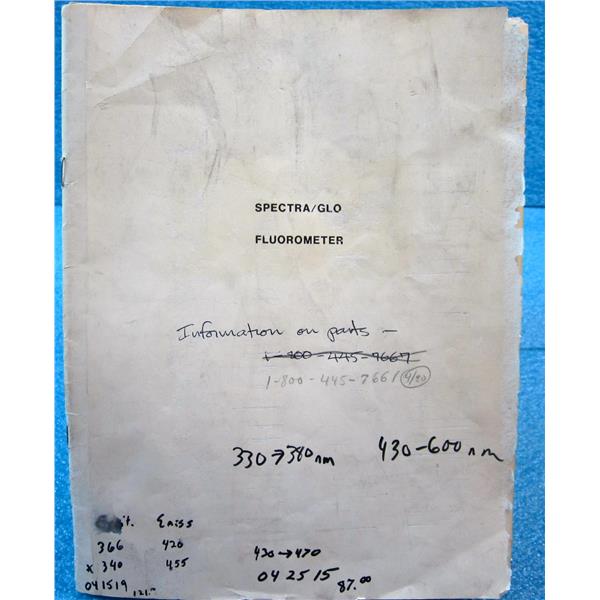 SPECTRA/GLO
FLUOROMETER
Information on parts —
1-800-445-7667
1-800-445-7661 4/90
330→380nm 430-600nm
Emiss
366 420
x 340 455
420→470
041519 121.
042515 87.00